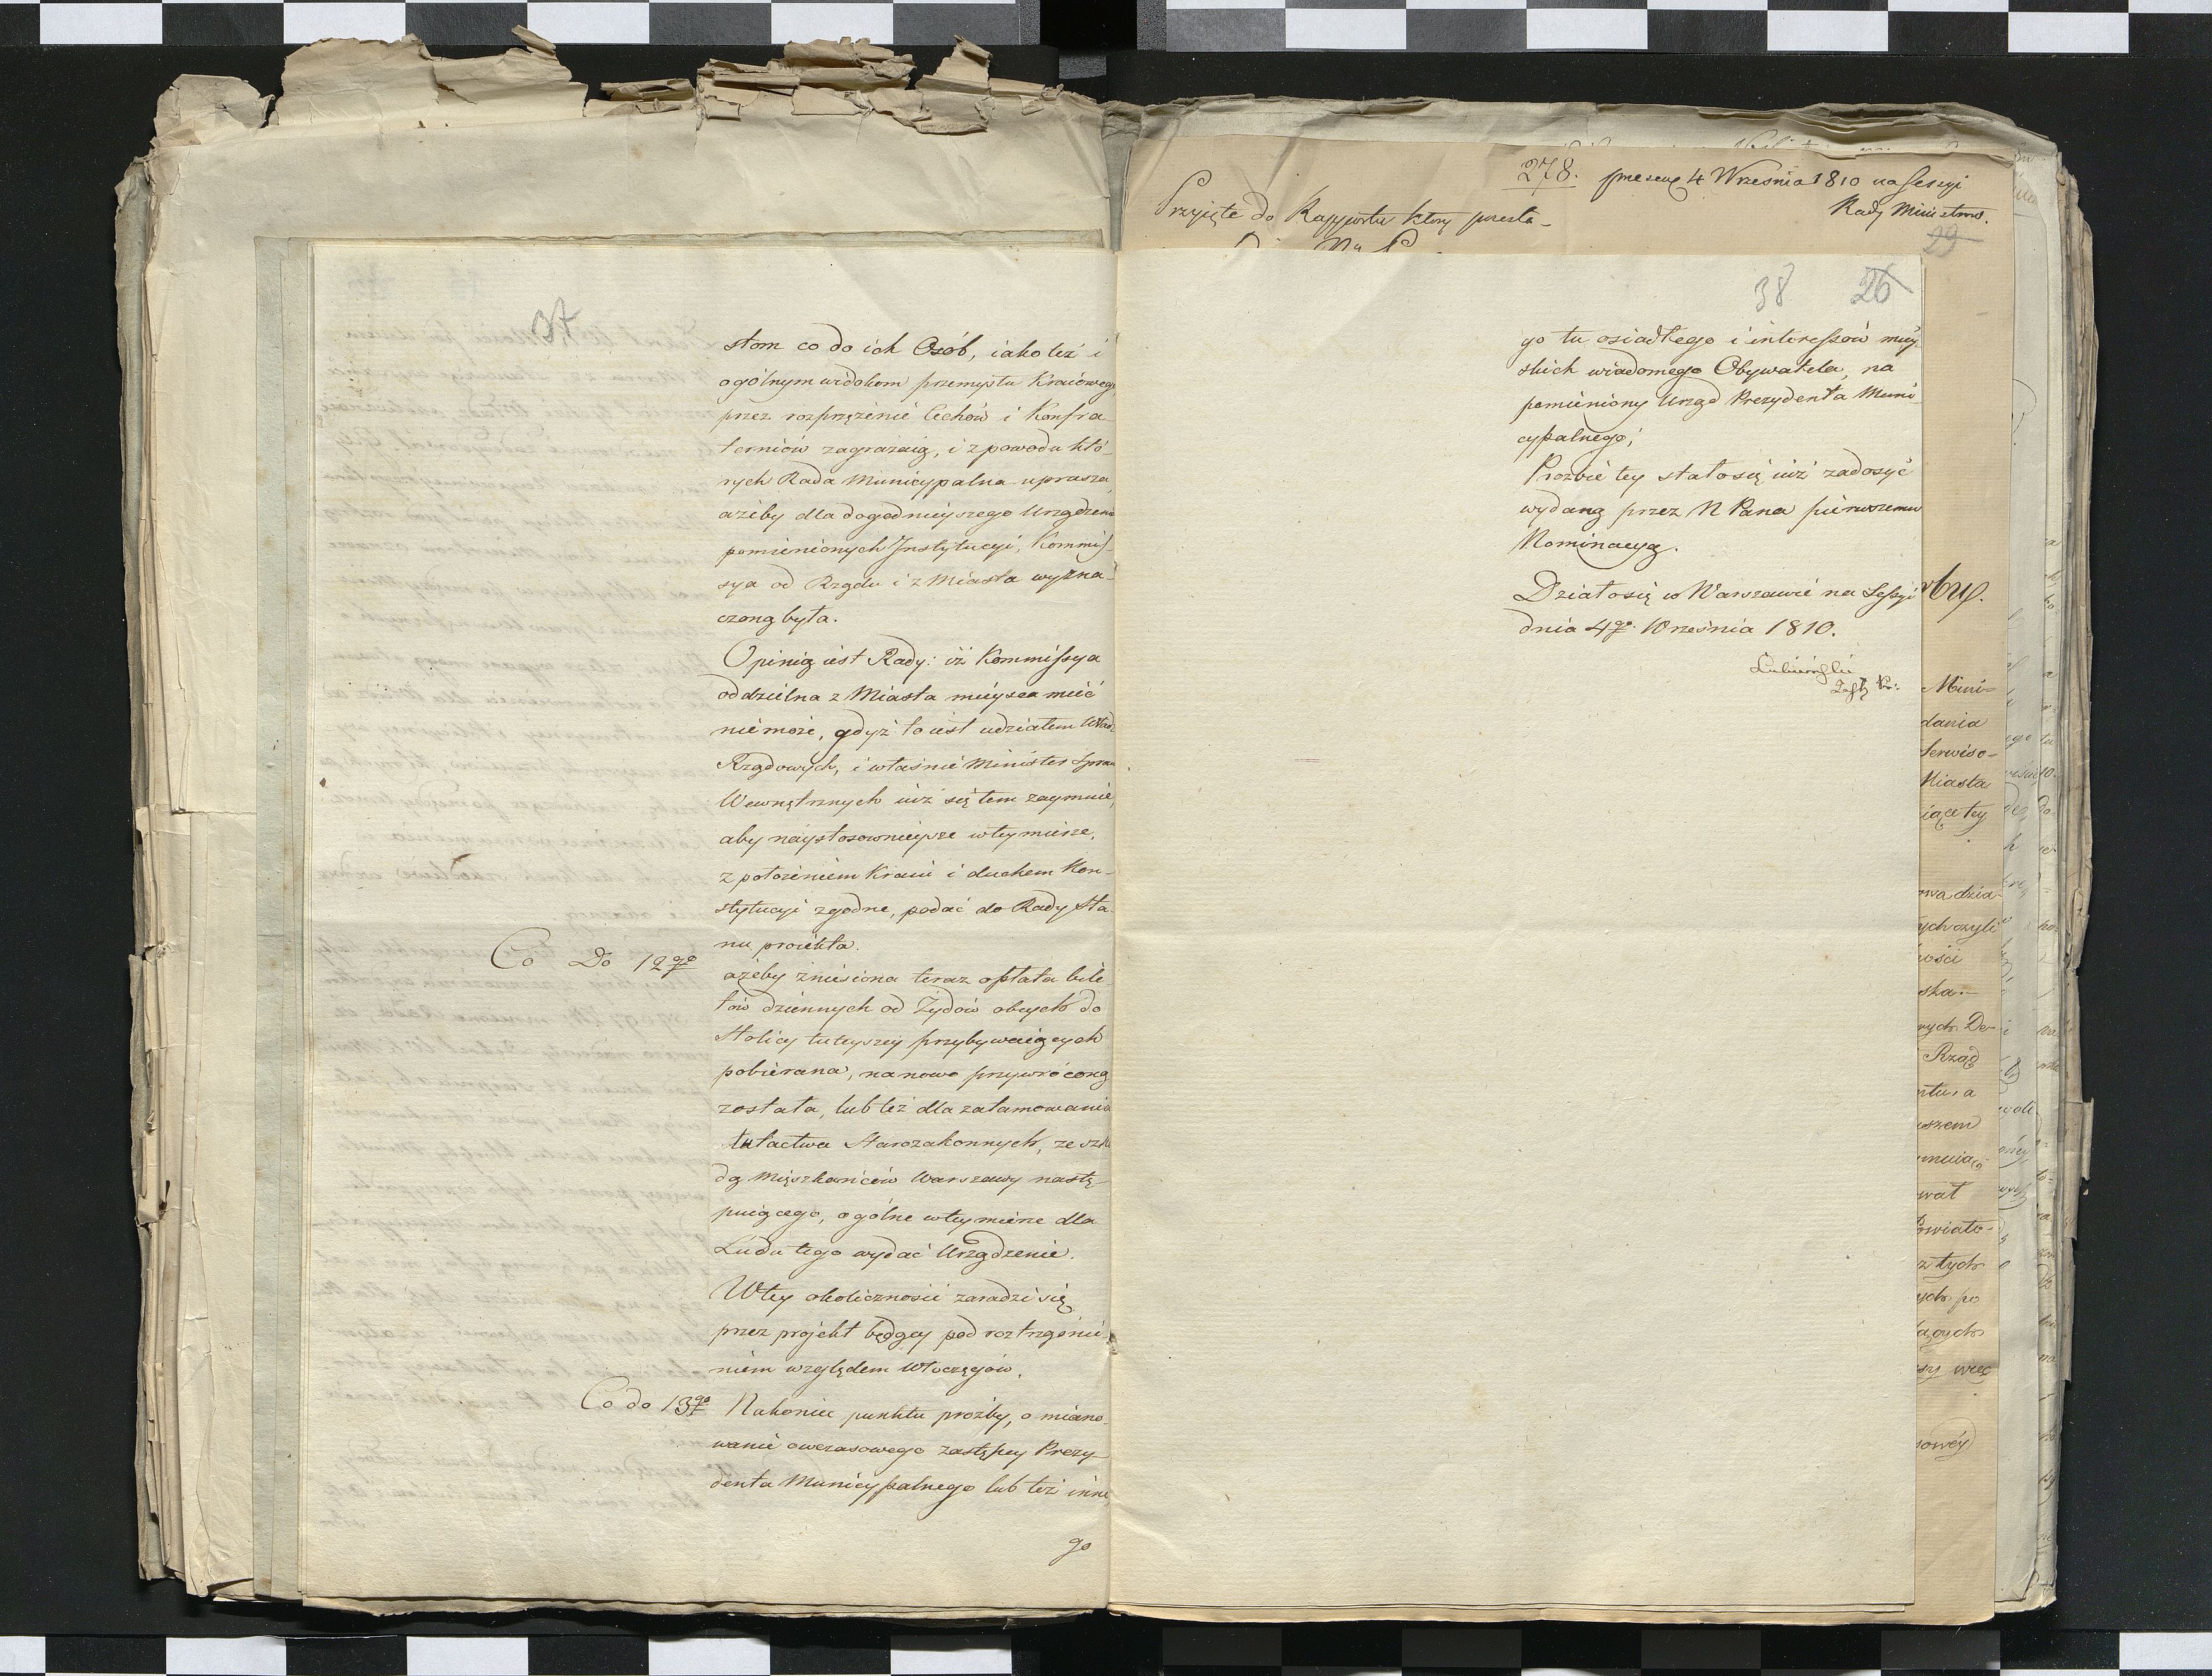 37
stom co do ich Osób, iako też i
ogólnym widokom przemysłu Kraiowego
przez rozprzężenie Cechów i Konfra
terniów zagrażaią, i z powodu któ-
rych Rada Municypalna uprasza,
ażeby dla dogodnieyszego Urządzenia
pomienionych Instytucyi, Kommis-
sya od Rządu i z Miasta wyzna-
czoną była.
Opinią iest Rady: iż Kommissya
oddzielna z Miasta mieysca mieć
nie może, gdyż to iest udziałem Władz
Rządowych, i właśnie Minister Spraw
Wewnętrznych iuż się tem zaymuie,
aby naystosownieysze w tey mierze,
z położeniem Kraiu i duchem Kon-
stytucyi zgodne, podać do Rady Sta-
nu proiekta.
Co Do 12go
ażeby zniesiona teraz opłata bile
tów dziennych od Żydów obcych do
Stolicy tuteyszey przybywaiących
pobierana, na nowo przywróconą
została, lub też dla zatamowania
tułactwa Starozakonnych, ze szko
dą Mięszkańców Warszawy nastę-
puiącego, ogólne w tey mierze dla
Ludu tego wydać Urządzenie.
W tey okoliczności zaradzi się
przez projekt będący pod roztrząśnie
niem względem Włoczęgów.
Co do 13go Nakoniec punktu prozby, o miano-
wanie owczasowego zastępcy Prezy-
denta Municypalnego lub też inne
go
278. 4 Września 1810 na Sessyi
Rady Ministrów.
Przyięte do Rapportu który
29
38 26
go tu osiadłego i interessów miey
skich wiadomego Obywatela, na
pomieniony Urząd Prezydenta Muni
cypalnego;
Prozbie tey stało się iuż zadosyć
wydaną przez N Pana pierwszemu
Nominacyą.
Działo się w Warszawie na Sessyi
dnia 4go Września 1810.
Mini=
dania
Serwiso-
Miasta
iące tey
Rząd
Powiato-
z tych